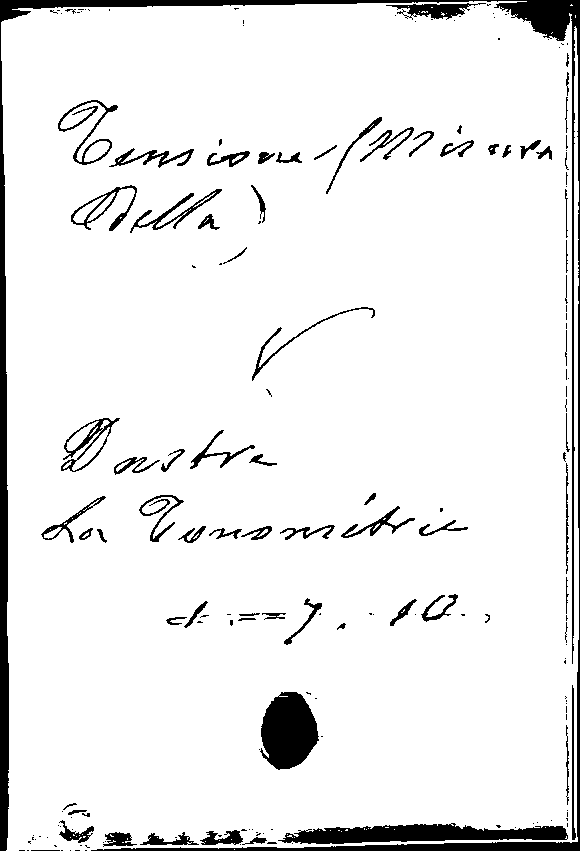 Tensione (Misura
della)
V
Dastre
La Tonométrie
d = 7. 10.